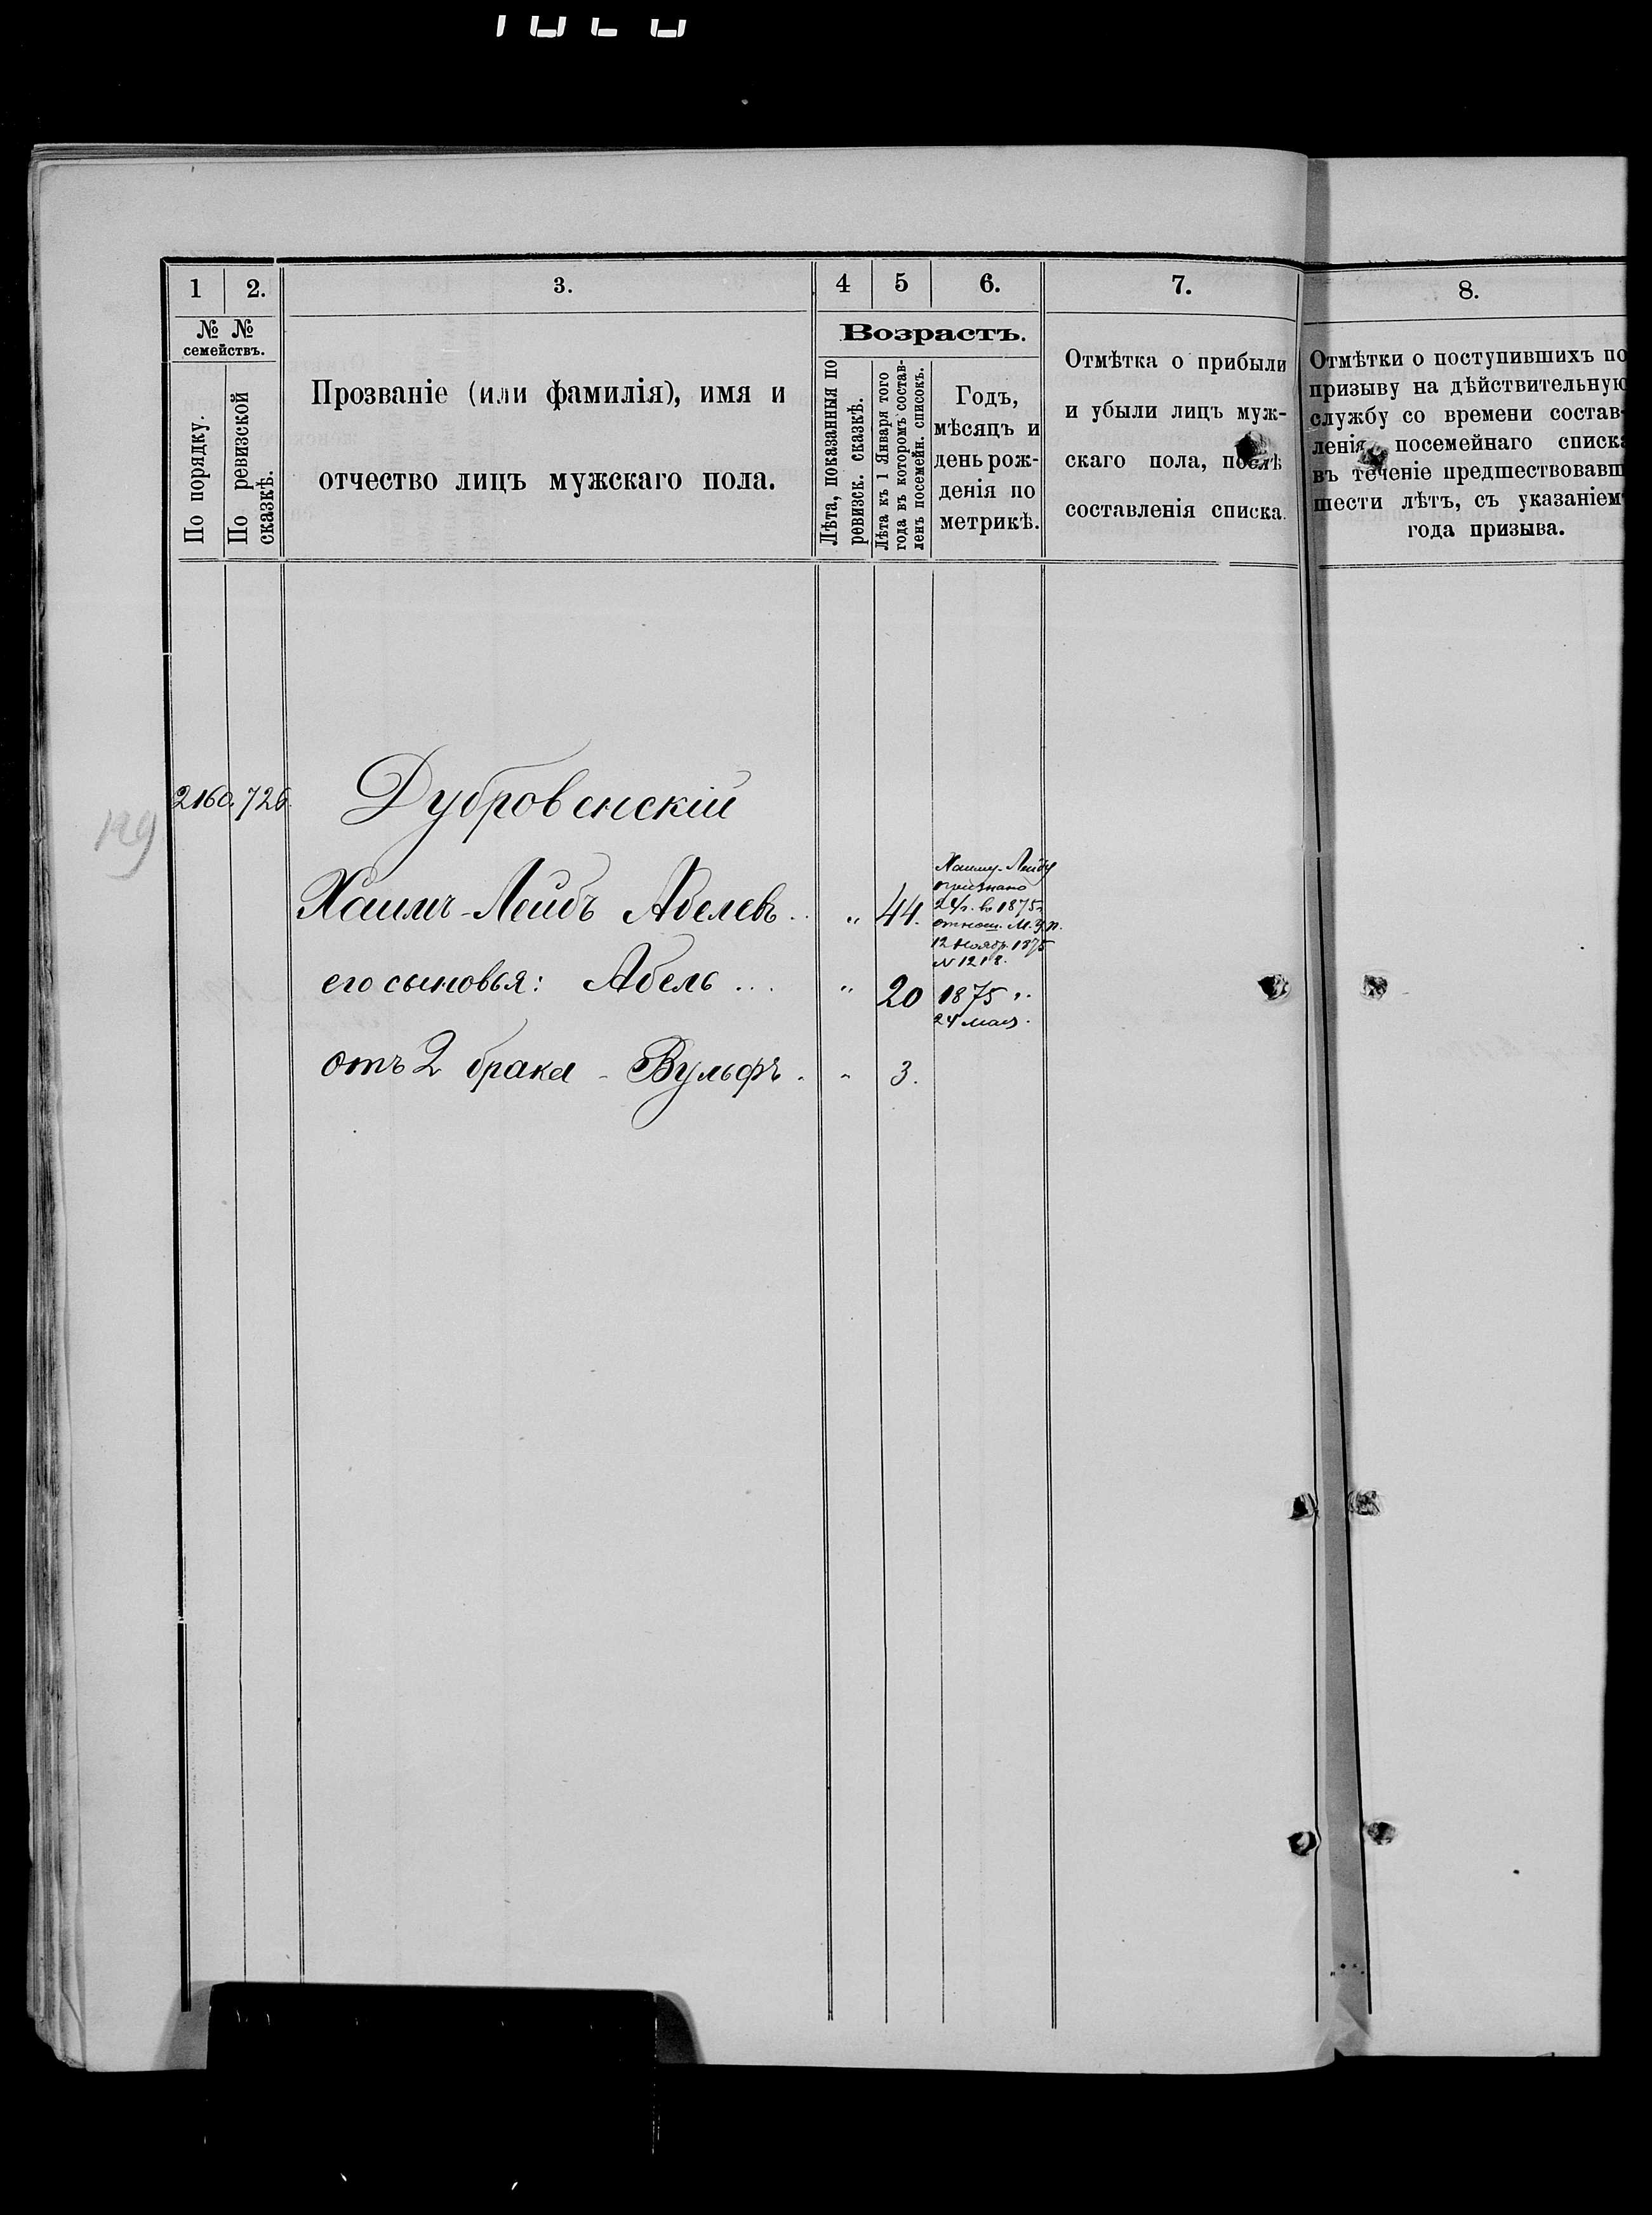 1 2. 3. 4 5 6. 7. 8.
№ №
семействъ.
По порядку.
По ревизской
сказкѣ.
Прозваніе (или фамилія), имя и
отчество лицъ мужскаго пола.
Возрастъ.
Лѣта, показанныя по
ревизск. сказкѣ.
Лѣта къ 1 Января того
года въ которомъ состав-
ленъ посемейн. списокъ.
Годъ,
мѣсяцъ и
день рож-
денія по
метрикѣ.
Отмѣтка о прибыли
и убыли лицъ муж-
скаго пола, послѣ
составленія списка.
Отмѣтки о поступившихъ по
призыву на дѣйствительную
службу со времени состав-
ленія посемейнаго списка
въ теченіе предшествовавш
шести лѣтъ, съ указаніем
года призыва.
2160. 726. Дубровенскій
129
Хаимъ-Лейбъ Абелевъ .. " 44.
Хаиму-Лейбу
признано
24 г. въ 1875 г.
отнош. М. У. п.
12 Ноябр. 1875
N 1218.
его сыновья: Абель ... " 20 1875 г.
24 мая.
отъ 2 брака - Вульфъ. " 3.